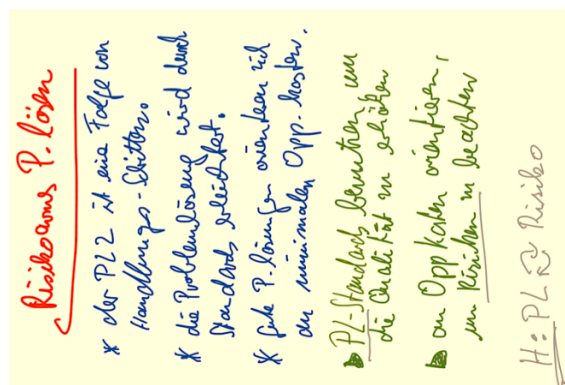 Risikoarms P. lösen
* der PLZ ist eine Folge von
Handlungs-Schritten.
* die Problemlösung wird durch
Standards erleichtert.
* Gute P. lösungen orientieren sich
an minimalen Opp. kosten.
PL-Standards benutzen, um
die Qualität zu erhöhen
an Oppkosten orientieren,
um Risiken zu beachten
H: PL Risiko